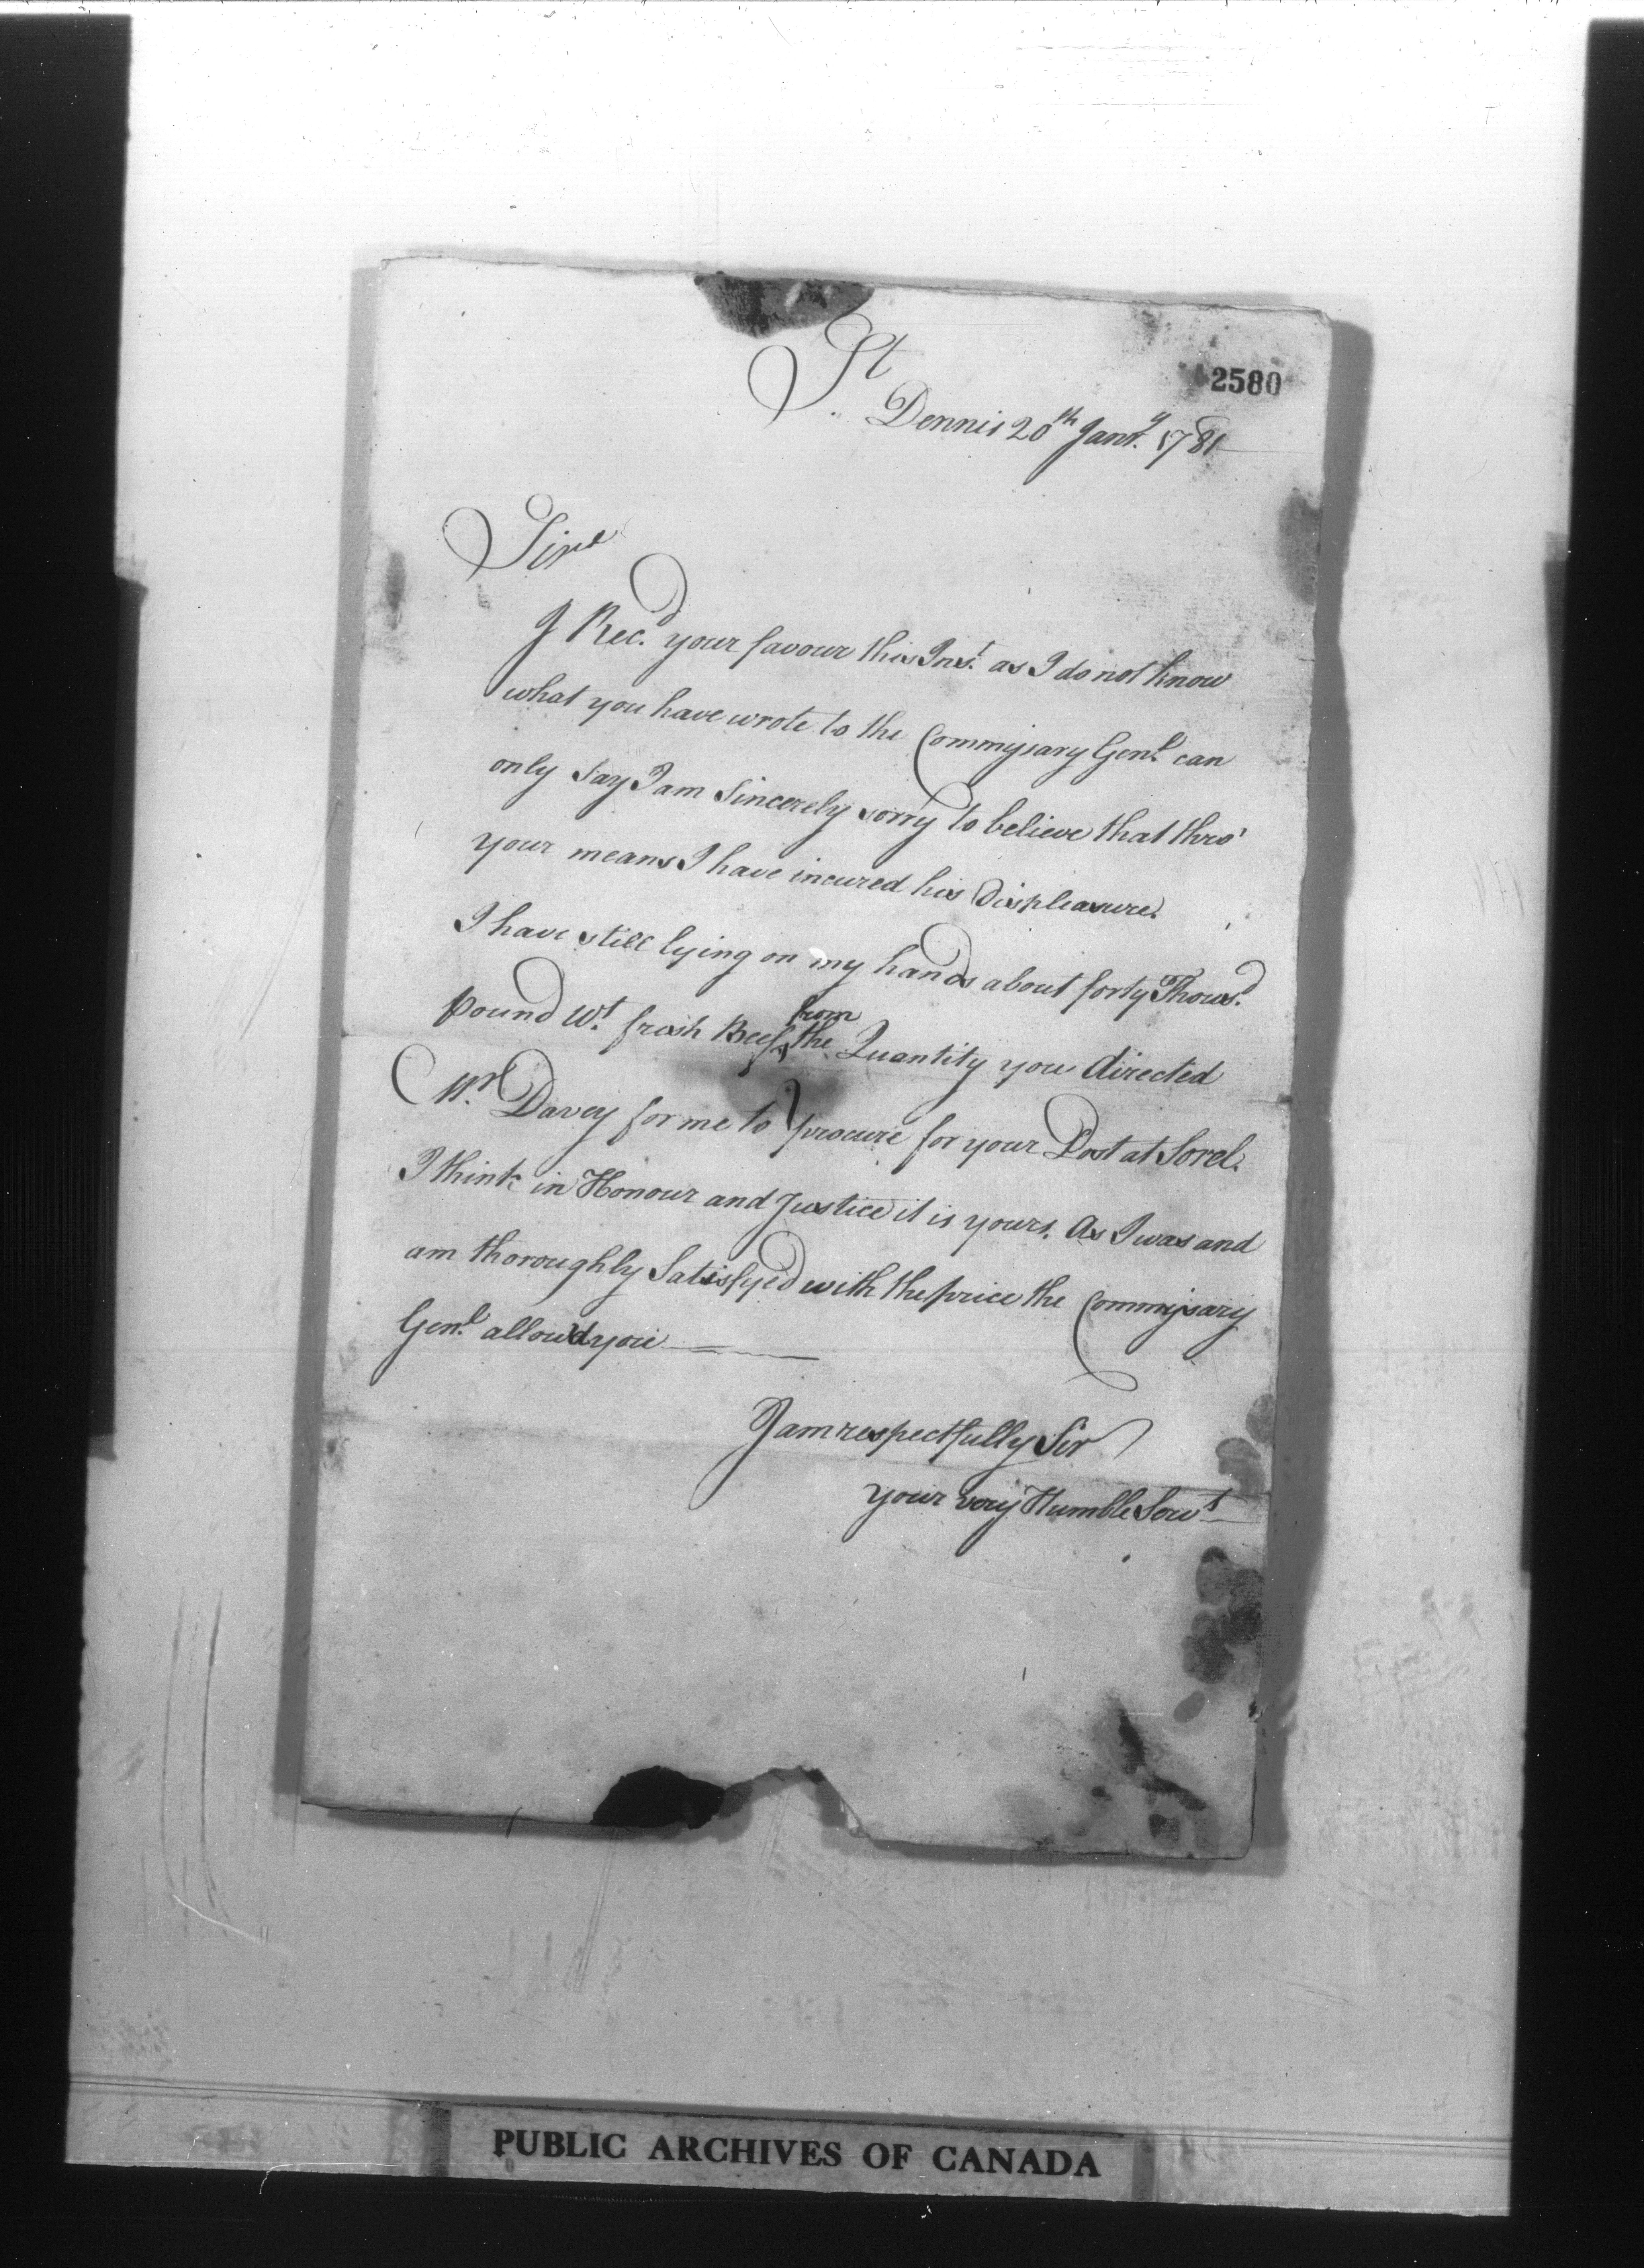 2580
St
Dennis 20th Jany. 1781
Sir
I Rec.d your favour this Inst. as I do not know
what you have wrote to the Commissary Genl. can
only say I am Sincerely sorry to believe that thro'
your means I have incured his Displeasure.
I have still lying on my hands about forty Thousd.
pound Wt. fresh Beef, from the Quantity you directed
Mr. Davey for me to procure for your Post at Sorel.
I think in Honour and Justice it is yours. As I was and
am thoroughly Satisfyed with the price the Commissary
Genl. allow'd you
I am respectfully Sir
your very Humble Servt
PUBLIC ARCHIVES OF CANADA